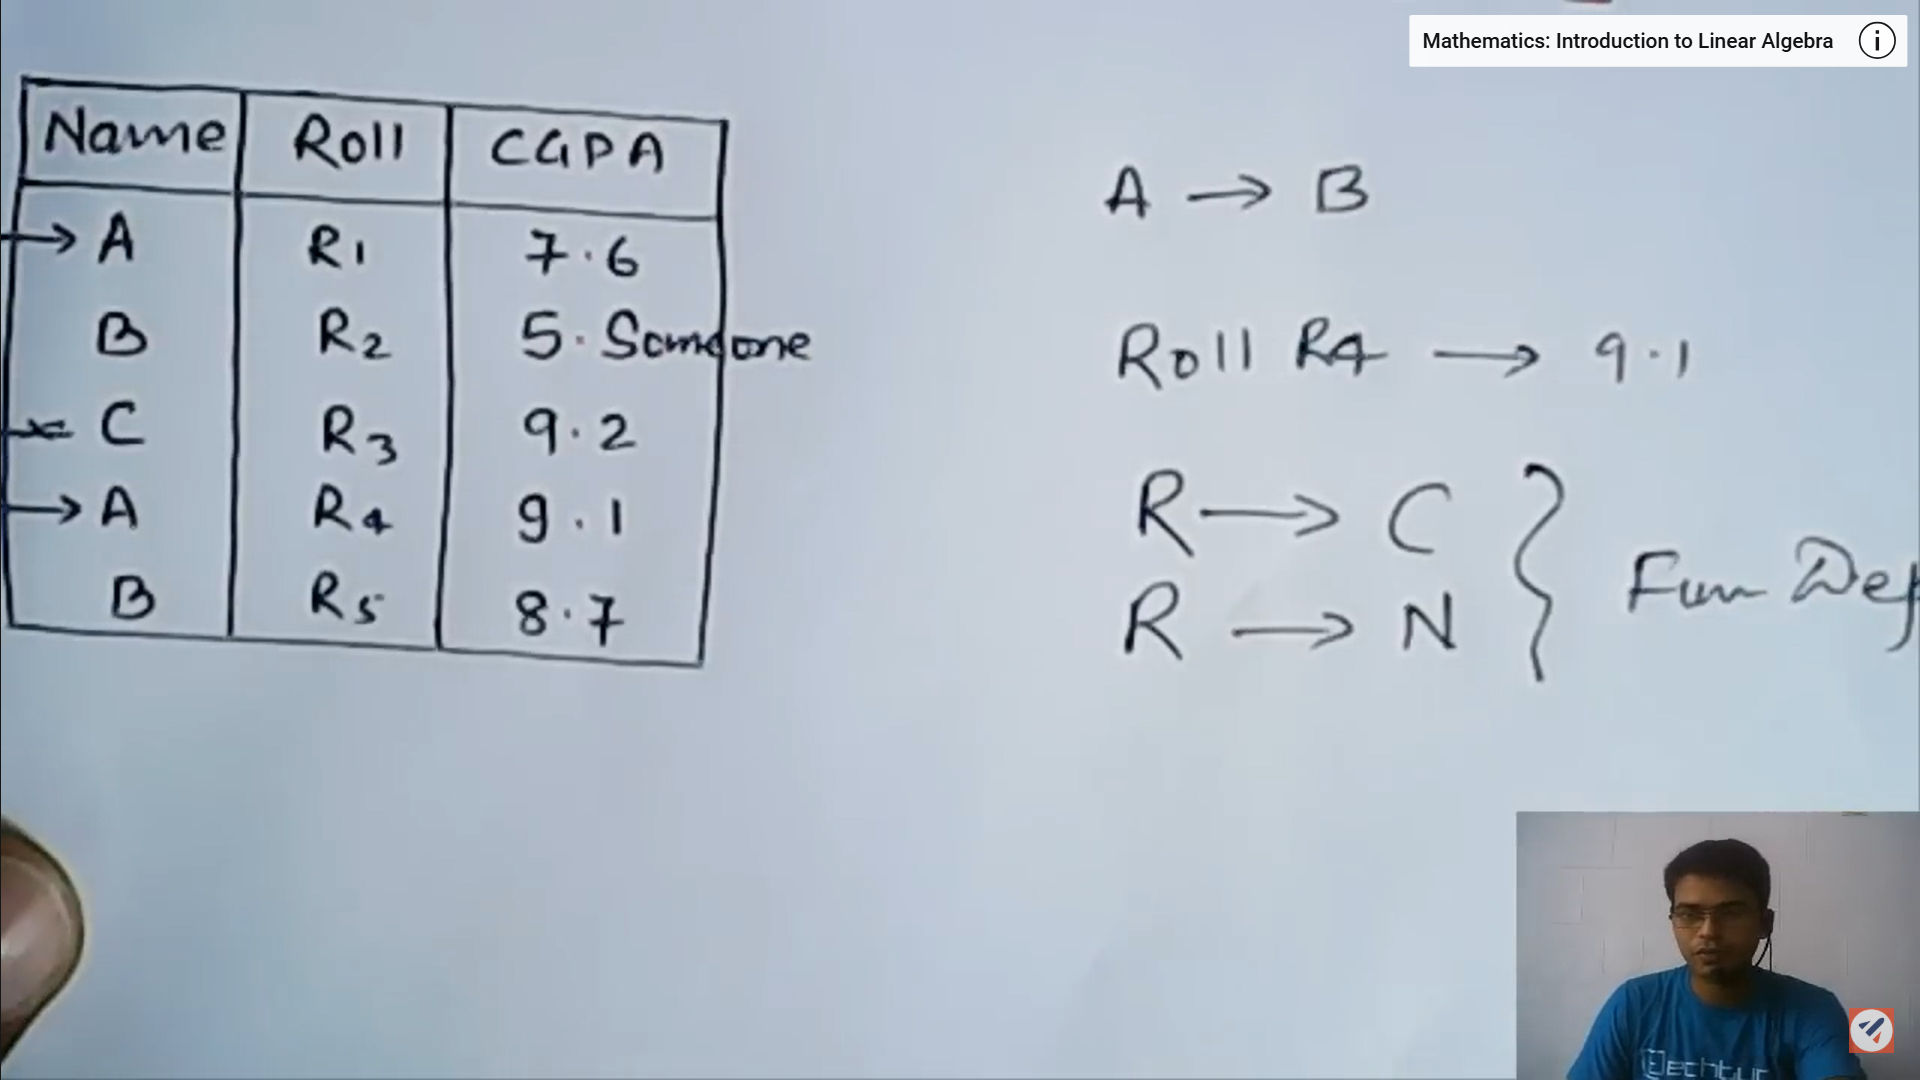 Mathematics: Introduction to Linear Algebra
Name Roll CGPA
A R1 7.6
B R2 5.Someone
C R3 9.2
A R4 9.1
B R5 8.7
A → B
Roll R4 → 9.1
R → C
R → N
Fun Dep